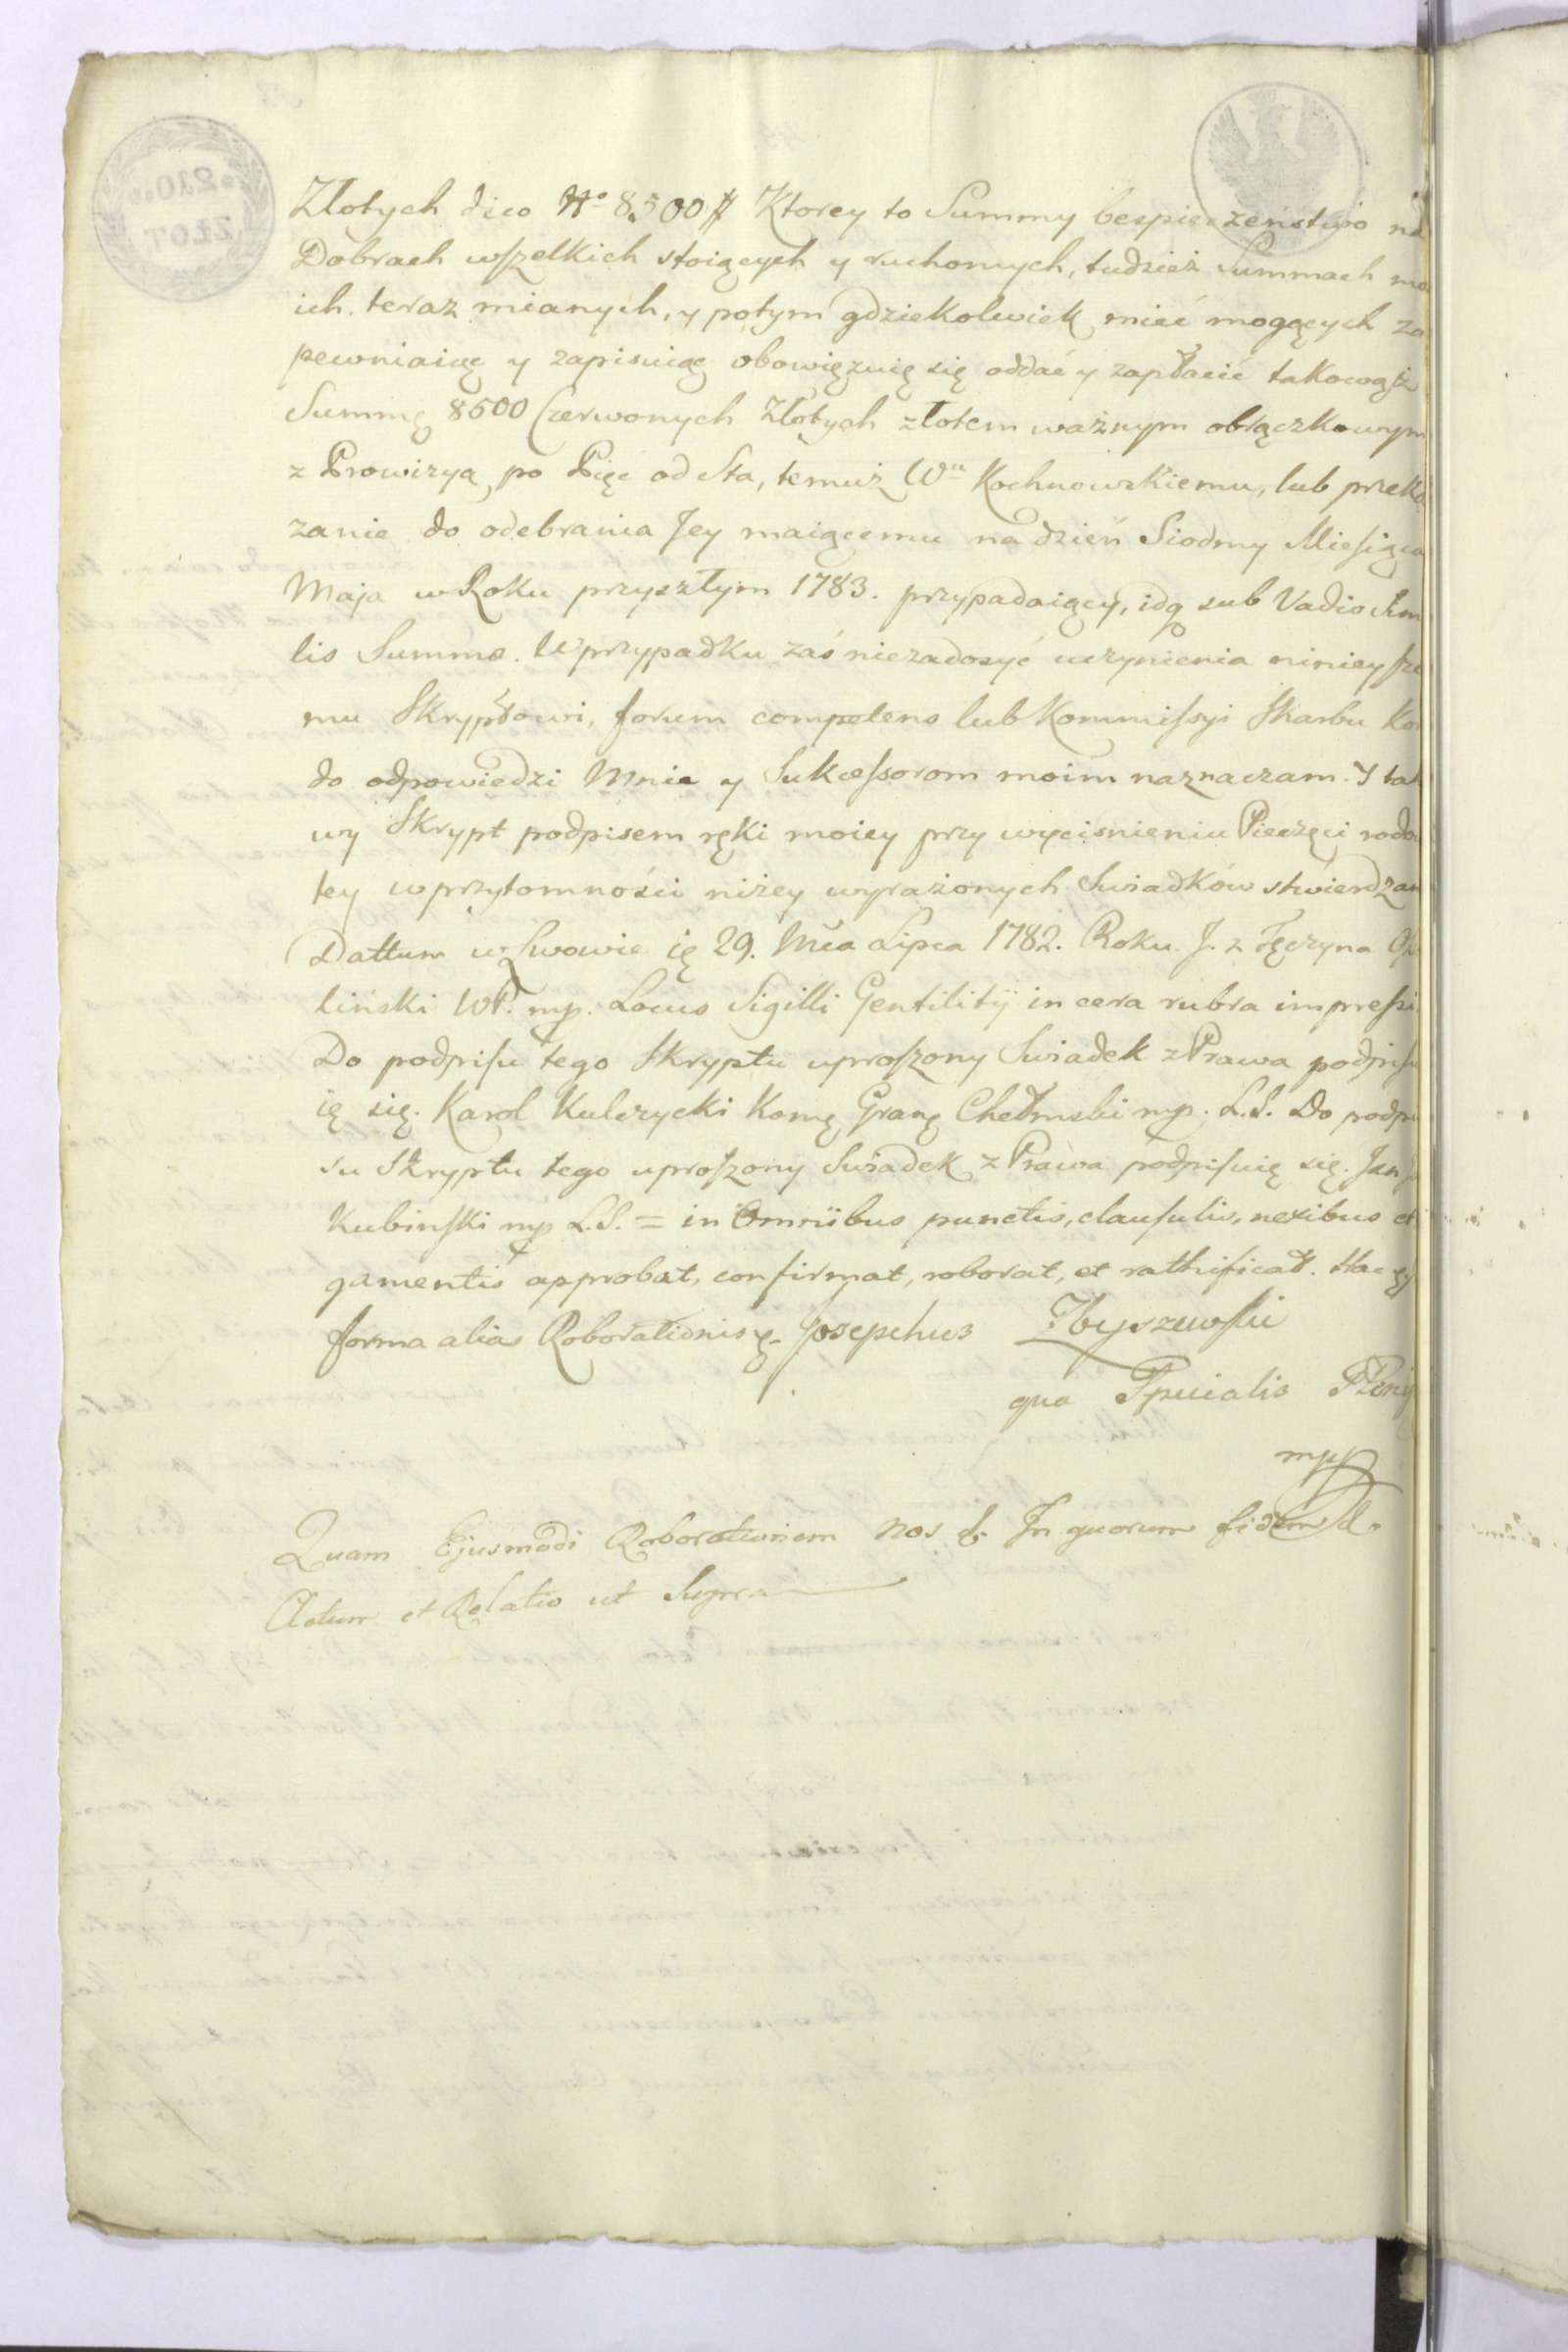 Złotych dico No 8500 # Ktorey to Summy bespieczeństwo na
Dobrach wszelkich stoiących y ruchomych, tudzież Summach mo
ich teraz mianych, y potym gdziekolwiek mieć mogących za
pewniaię y zapisuię obowięzuię się oddać y zapłacić takowąż
Summę 8500 Czerwonych Złotych złotem ważnym obrączkowym
z Prowizyą po Pięć od Sta, temuż Wu Kochnowskiemu, lub przeka
zanie do odebrania Jey maiącemu na dzień Siodmy Miesiąca
Maja w Roku przyszłym 1783. przypadaiący, idq sub Vadio Simi
lis Summæ. W przypadku zaś niezadosyć uczynienia ninieysze
mu Skryptowi, forum competens lub Kommissyi Skarbu Kor
do odpowiedzi Mnie y Sukcessorom moim naznaczam. Y tak
wy Skrypt podpisem ręki moiey przy wycisnieniu Pieczęci rodo
tey w przytomności niżey wyrażonych Swiadków stwierdzam
Dattum w Lwowie 29. Mca Lipca 1782. Roku. J. z Tęczyna Os
liński WP. mp. Locus Sigilli Gentilitij in cera rubra impressi.
Do podpisu tego Skryptu uproszony Swiadek z Prawa podpisu
ię się. Karol Kulczycki Komę Granę Chełmski mp. L.S. Do podpi
su Skryptu tego uproszony Swiadek z Prawa podpisuię się. Jan
Kubinski mp L.S. = in Omnibus punctis, clausulis, nexibus et
gamentis approbat, confirmat, roborat, et rathificat. Hac
forma alias Roborationis Josephus Zbyszewski
qua Spcialis Plenip
mpp
Quam Ejusmodi Roborationem nos In quorum fidem
Actum et Relatio ut Supra
210
ZŁOT